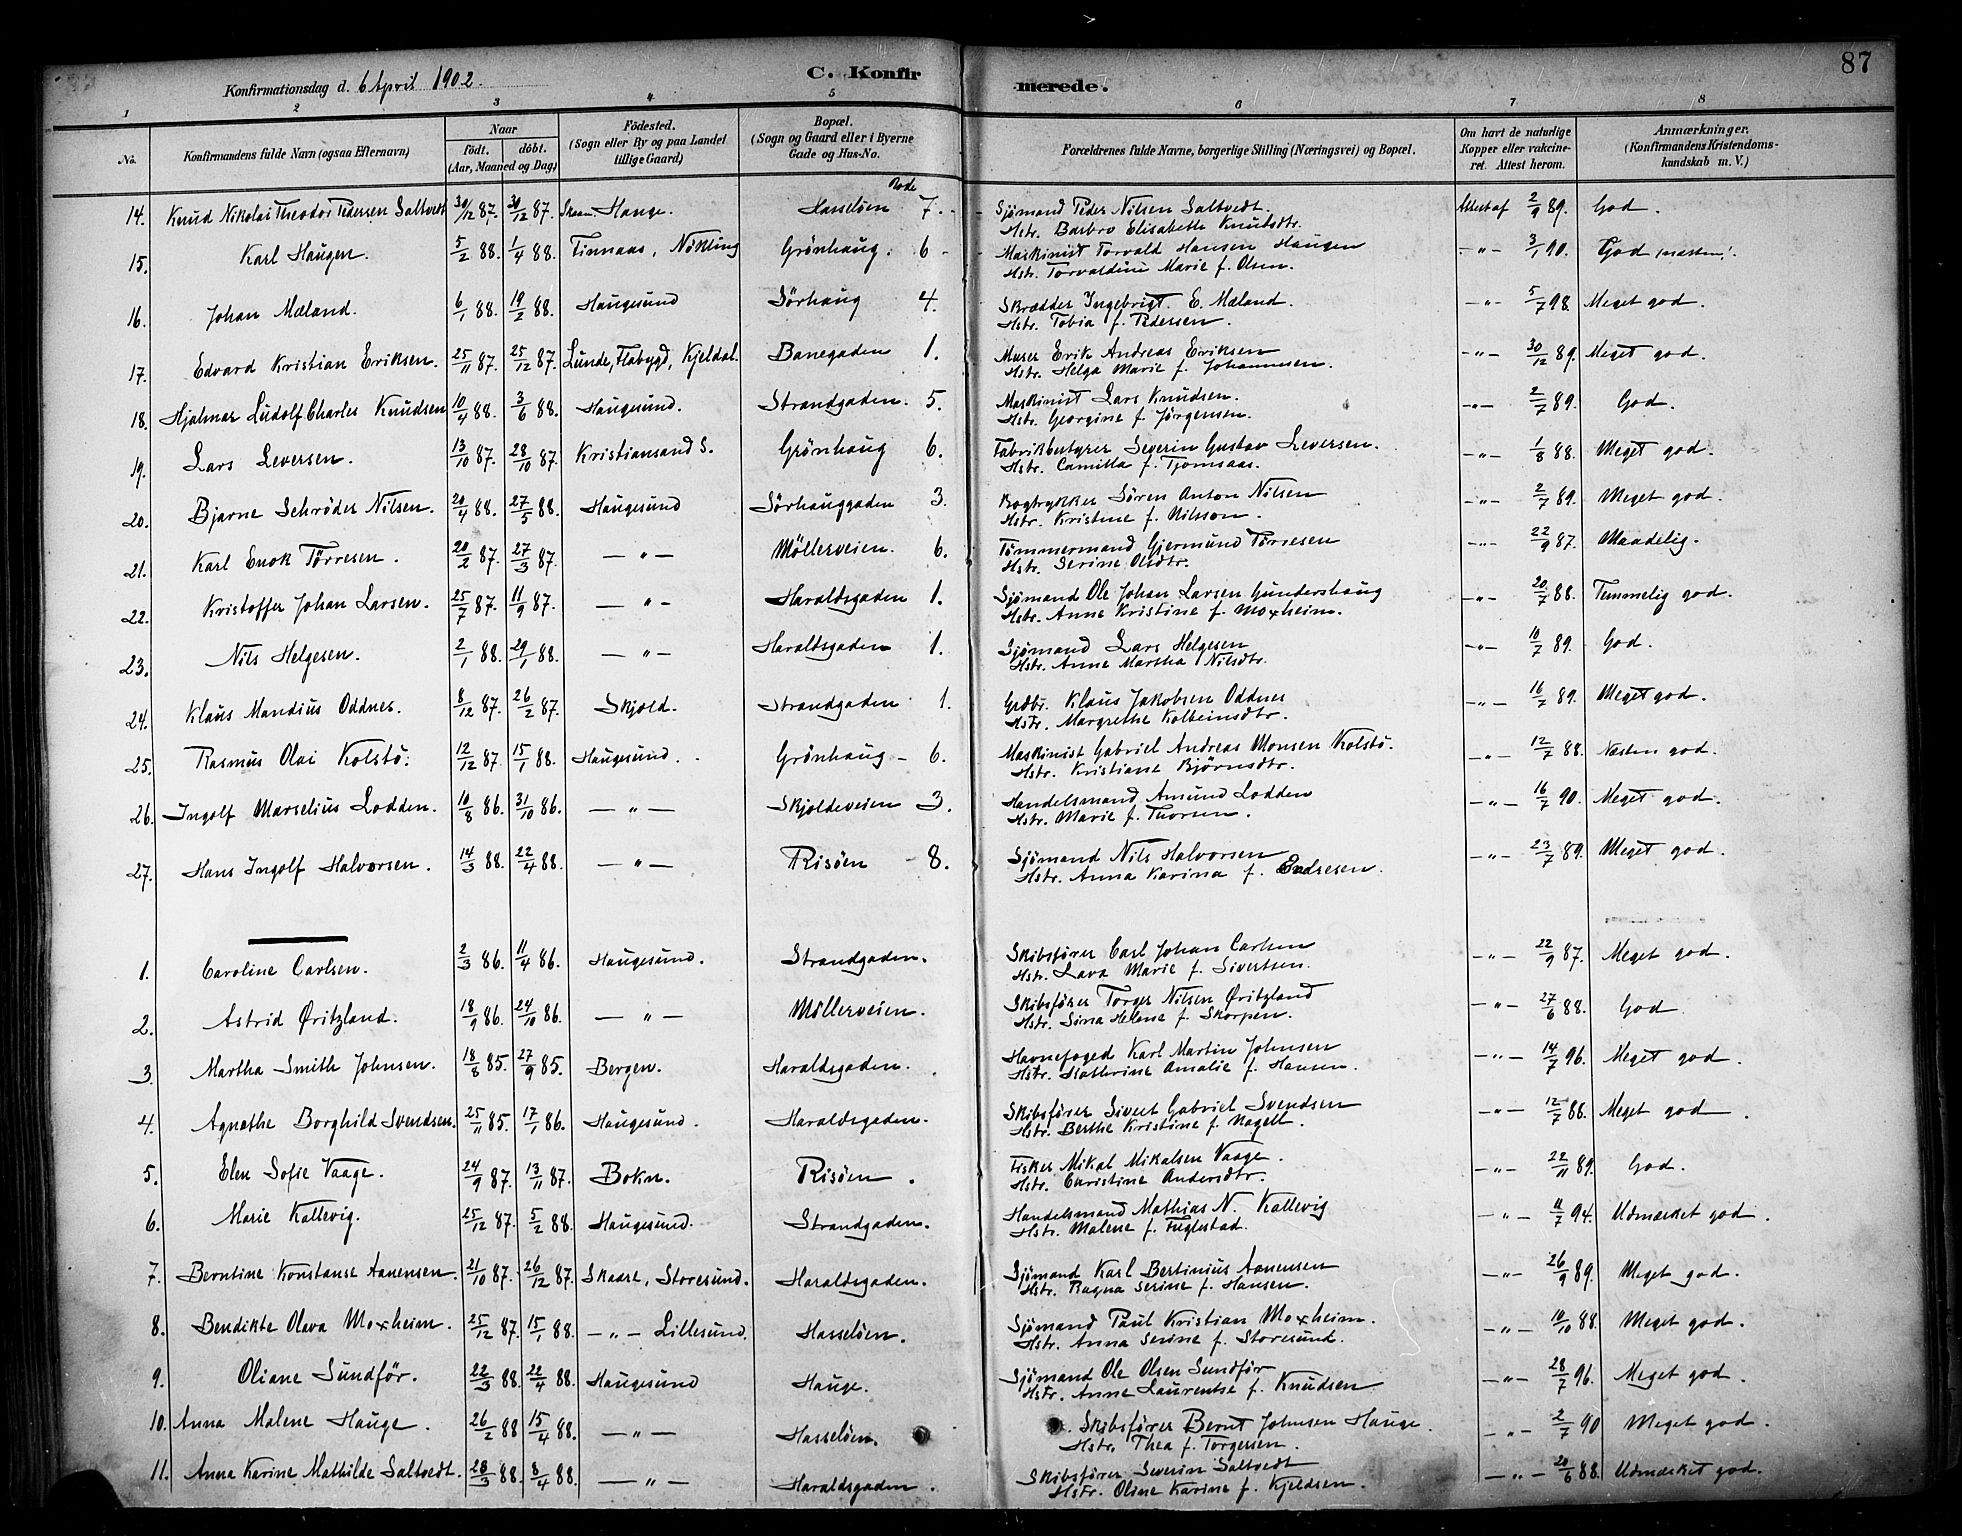 87
Konfirmationsdag d. 6 April 1902.
C. Konfirmerede.
1 2 3 4 5 6 7 8
No. Konfirmandens fulde Navn (ogsaa Efternavn) Naar födt. döbt. (Aar, Maaned og Dag) Födested. (Sogn eller By og paa Landet tillige Gaard) Bopæl. (Sogn og Gaard eller i Byerne Gade og Hus-No. Forældrenes fulde Navne, borgerlige Stilling (Næringsvei) og Bopæl. Om havt de naturlige Kopper eller vakcineret. Attest herom. Anmærkninger. (Konfirmandens Kristendomskundskab m. V.)
Rode
14. Knud Nikolai Theodor Pedersen Saltvedt 30/12 87. 30/12 87. Hauge. Hasseløen 7. Sjømand Peder Nilsen Saltvedt. Attest af 2/9 89. God.
Hstr. Barbro Elisabeth Knutsdtr.
15. Karl Haugen. 5/2 88. 1/4 88. Finnaas, Nökling Grönhaug. 6 Maskinist Torvald Hansen Haugen - " - 3/1 90. God næsten!
Hstr. Torvaldine Marie f. Olsen.
16. Johan Mæland. 6/1 88. 19/2 88. Haugesund Sörhaug 4. Skrædder Ingebrigt E. Mæland. - " - 5/7 98. Meget god.
Hstr. Tobia f. Pedersen.
17. Edvard Kristian Eriksen. 25/11 87. 25/12 87. Lunde, Flabygd, Kjeldal. Banegaden 1. Murer Erik Andreas Eriksen - " - 30/12 89. Meget god.
Hstr. Helga Marie f. Johannesen.
18. Hjalmar Ludolf Charles Knudsen 10/4 88. 3/6 88. Haugesund. Strandgaden. 5. Maskinist Lars Knudsen. - " - 2/7 89. God.
Hstr. Georgine f. Jørgensen.
19. Lars Seversen. 13/10 87. 28/10 87. Kristiansand S. Grönhaug 6. Fabrikbestyrer Severin Gustav Seversen. - " - 1/8 88. Meget god.
Hstr. Camilla f. Tjomsaas.
20. Bjarne Schrøder Nilsen. 20/4 88. 27/5 88. Haugesund Sörhauggaden 3. Bogtrykker Søren Anton Nilsen - " - 2/7 89. Meget god.
Hstr. Kristine f. Nilsson.
21. Karl Enok Tørresen. 20/2 87. 27/3 87. - " - Möllerveien. 6. Tømmermand Gjermund Tørresen - " - 22/9 87. Maadelig.
Hstr. Serine Olsdtr.
22. Kristoffer Johan Larsen. 25/7 87. 11/9 87. - " - Haraldsgaden 1. Sjømand Ole Johan Larsen Gundershaug - " - 20/7 88. Temmelig god.
Hstr. Anne Kristine f. Moxheim.
23. Nils Helgesen. 2/1 88. 29/1 88. - " - Haraldsgaden 1. Sjømand Lars Helgesen - " - 10/7 89. God.
Hstr. Anne Martha Nilsdtr.
24. Klaus Mandius Oddnes. 8/12 87. 26/2 87. Skjold. Strandgaden 1. Grdbr. Klaus Jakobsen Oddnes - " - 16/7 89. Meget god.
Hstr. Margrethe Kolbeinsdtr.
25. Rasmus Olai Kolstö. 12/12 87. 15/1 88. Haugesund. Grönhaug - 6. Maskinist Gabriel Andreas Monsen Kolstö. - " - 12/7 88. Næsten god.
Hstr. Kristiane Bjørnsdtr.
26. Ingolf Marselius Lodden. 10/8 86. 31/10 86. - " - Skjoldeveien 3. Handelsmand Amund Lodden - " - 16/7 90. Meget god.
Hstr. Marie f. Thorsen.
27. Hans Ingolf Halvorsen. 14/3 88. 22/4 88. - " - Risöen - 8. Sjømand Nils Halvorsen - " - 23/7 89. Meget god.
Hstr. Anna Karina f. Endresen.
1. Caroline Carlsen. 2/3 86. 11/4 86. Haugesund. Strandgaden. Skibsfører Carl Johan Carlsen - " - 22/9 87. Meget god.
Hstr. Lava Marie f. Sivertsen.
2. Astrid Øritzland. 18/9 86. 24/10 86. - " - Möllerveien. Skibsfører Torger Nilsen Øritzland - " - 27/6 88. God
Hstr. Sina Helene f. Skorpen.
3. Martha Smith Johnsen. 18/8 85. 27/9 85. Bergen. Haraldsgaden. Havnefoged Karl Martin Johnsen - " - 14/7 96. Meget god.
Hstr. Kathrine Amalie f. Hansen.
4. Agnethe Borghild Svendsen. 25/11 85. 17/1 86. Haugesund. Haraldsgaden. Skibsfører Sivert Gabriel Svendsen - " - 12/7 86. Meget god.
Hstr. Berthe Kristine f. Nagell.
5. Elen Sofie Vaage. 24/9 87. 13/11 87. Bokn. Risöen. Fisker Mikal Mikalsen Vaage. - " - 22/11 89. God.
Hstr. Christine Andersdtr.
6. Marie Kallevig. 25/12 87. 5/2 88. Haugesund. Strandgaden. Handelsmand Mathias N. Kallevig - " - 11/7 94. Udmærket god.
Hstr. Malene f. Fuglestad.
7. Berntine Konstanse Aanensen. 21/10 87. 26/12 87. Skaare, Storesund. Haraldsgaden. Sjømand Karl Bertinius Aanensen - " - 26/9 89. Meget god.
Hstr. Ragna Serine f. Hansen.
8. Bendikte Olava Moxheim. 25/12 87. 15/1 88. - " - Lillesund. Hasselöen. Sjømand Paul Kristian Moxheim. - " - 10/10 88. Meget god.
Hstr. Anna Serine f. Storesund.
9. Oliane Sundför. 22/3 88. 22/4 88. Haugesund Hauge. Sjømand Ole Olsen Sundför - " - 28/7 96. Meget god.
Hstr. Anne Laurentse f. Knudsen
10. Anna Malene Hauge. 26/2 88 15/4 88. - " - Hasselöen. Skibsfører Bernt Johnsen Hauge. - " - 2/7 90 Meget god.
Hstr. Thea f. Torgersen.
11. Anna Karine Mathilde Saltvedt. 28/3 88. 8/4 88. - " - Haraldsgaden. Skibsfører Severin Saltvedt - " - 20/6 88. Udmærket god.
Hstr. Oline Karine f. Kjeldsen.